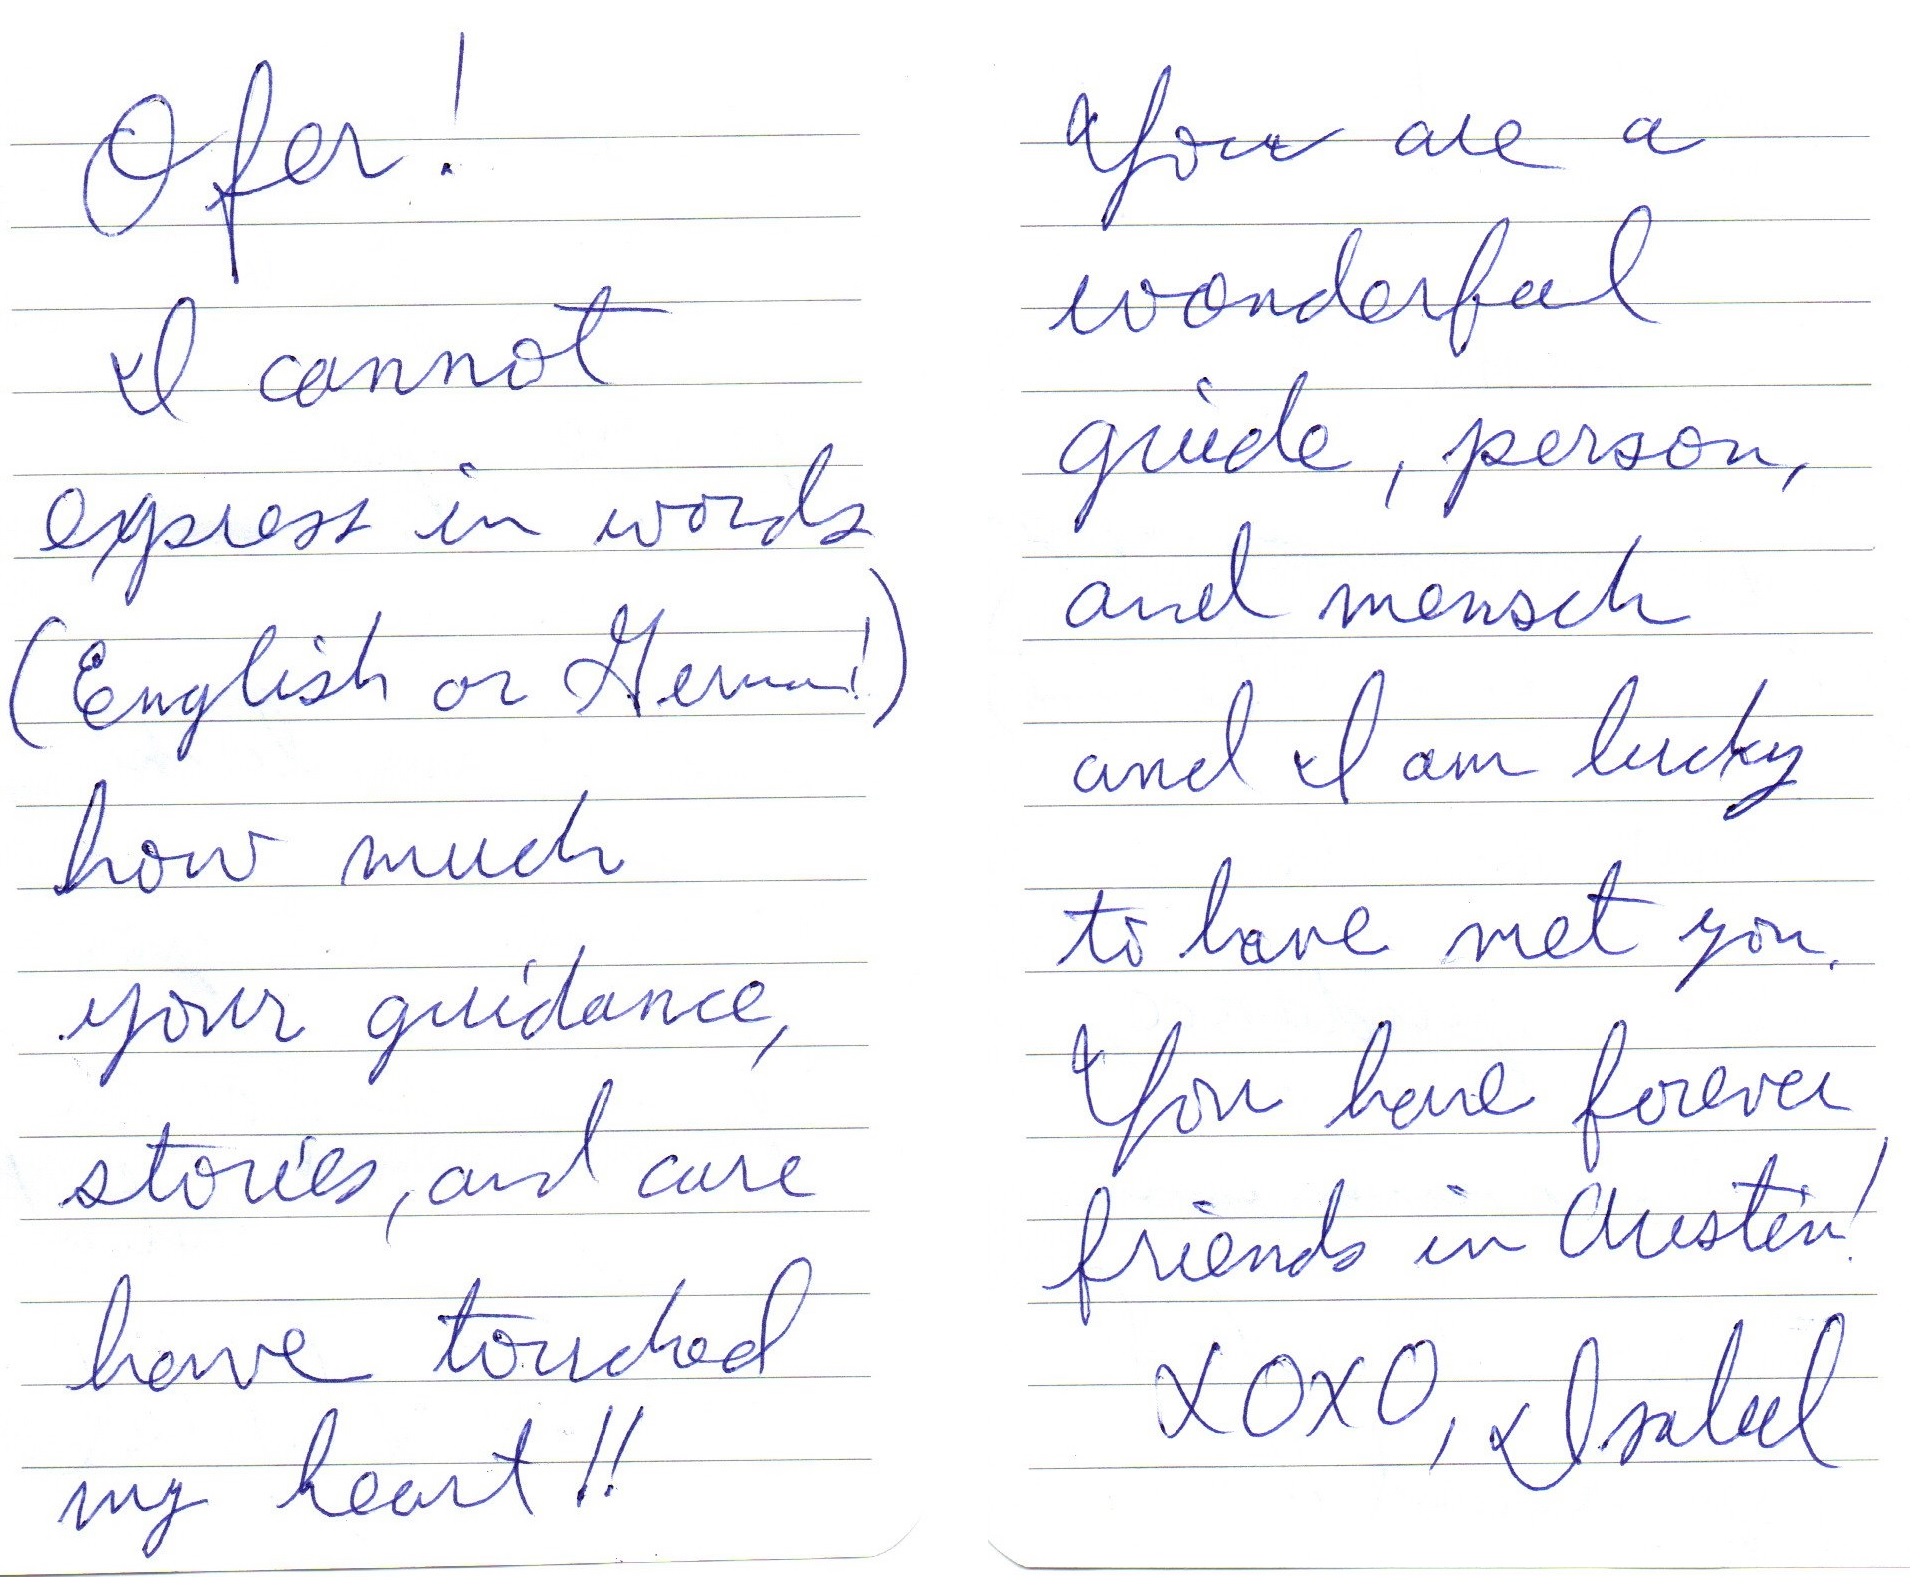 Ofer!
I cannot
express in words
(English or German!)
how much
your guidance,
stories, and care
have touched
my heart!!
You are a
wonderful
guide, person,
and mensch
and I am lucky
to have met you.
You have forever
friends in Austin!
XOXO, Isabel